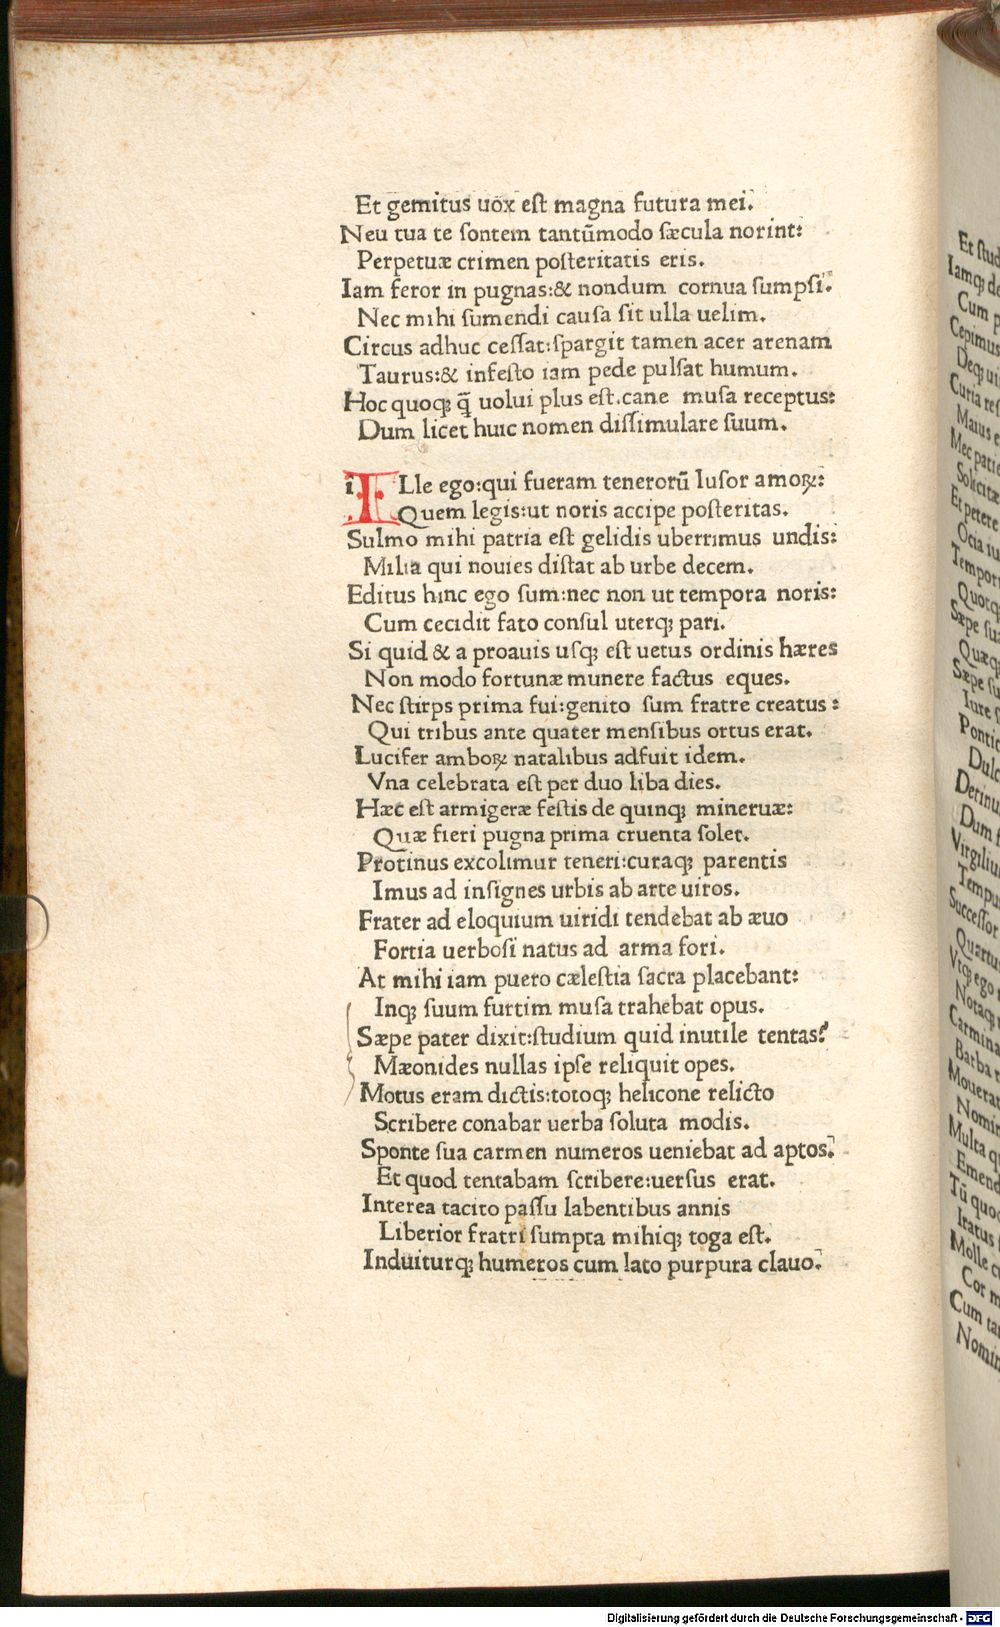 Et gemitus uox eſt magna futura mei.
Neu tua te ſontem tantūmodo ſæcula norint:
Perpetuæ crimen poſteritatis eris.
Iam feror in pugnas:& nondum cornua ſumpſi.
Nec mihi ſumendi cauſa ſit ulla uelim.
Circus adhuc ceſſat:ſpargit tamen acer arenam
Taurus:& infeſto iam pede pulſat humum.
Hoc quoqꝫ q̄ uolui plus eſt.cane muſa receptus:
Dum licet huic nomen diſſimulare ſuum.
ILle ego:qui fueram tenerorū luſor amoꝝ:
Quem legis:ut noris accipe poſteritas.
Sulmo mihi patria eſt gelidis uberrimus undis:
Milia qui nouies diſtat ab urbe decem.
Editus hinc ego ſum:nec non ut tempora noris:
Cum cecidit fato conſul uterqꝫ pari.
Si quid & a proauis uſqꝫ eſt uetus ordinis hæres
Non modo fortunæ munere factus eques.
Nec ſtirps prima fui:genito ſum fratre creatus:
Qui tribus ante quater menſibus ortus erat.
Lucifer amboꝝ natalibus adfuit idem.
Vna celebrata eſt per duo liba dies.
Hæc eſt armigeræ feſtis de quinqꝫ mineruæ:
Quæ fieri pugna prima cruenta ſolet.
Protinus excolimur teneri:curaqꝫ parentis
Imus ad inſignes urbis ab arte uiros.
Frater ad eloquium uiridi tendebat ab æuo
Fortia uerboſi natus ad arma fori.
At mihi iam puero cæleſtia ſacra placebant:
Inqꝫ ſuum furtim muſa trahebat opus.
Sæpe pater dixit:ſtudium quid inutile tentas?
Mæonides nullas ipſe reliquit opes.
Motus eram dictis:totoqꝫ helicone relicto
Scribere conabar uerba ſoluta modis.
Sponte ſua carmen numeros ueniebat ad aptos.
Et quod tentabam ſcribere:uerſus erat.
Interea tacito paſſu labentibus annis
Liberior fratri ſumpta mihiqꝫ toga eſt.
Induiturqꝫ humeros cum lato purpura clauo.
Et ſtud
Iamqꝫ de
Cum p
Cepimus
Deqꝫ ui
Curia reſ
Maius e
Nec patie
Solicitæ
Et petere
Ocia iu
Tempori
Quotqꝫ
Sæpe ſua
Quæqꝫ
Sæpe ſu
Iure ſ
Pontic
Dulc
Detinu
Dum f
Virgiliu
Tempu
Succeſſor
Quartus
Vtqꝫ ego
Notaqꝫ
Carmina
Barba r
Mouerat
Nomin
Multa q
Emend
Tū quoq
Iratus
Molle c
Cor m
Cum ta
Nomin
Digitalisierung gefördert durch die Deutsche Forschungsgemeinschaft - DFG